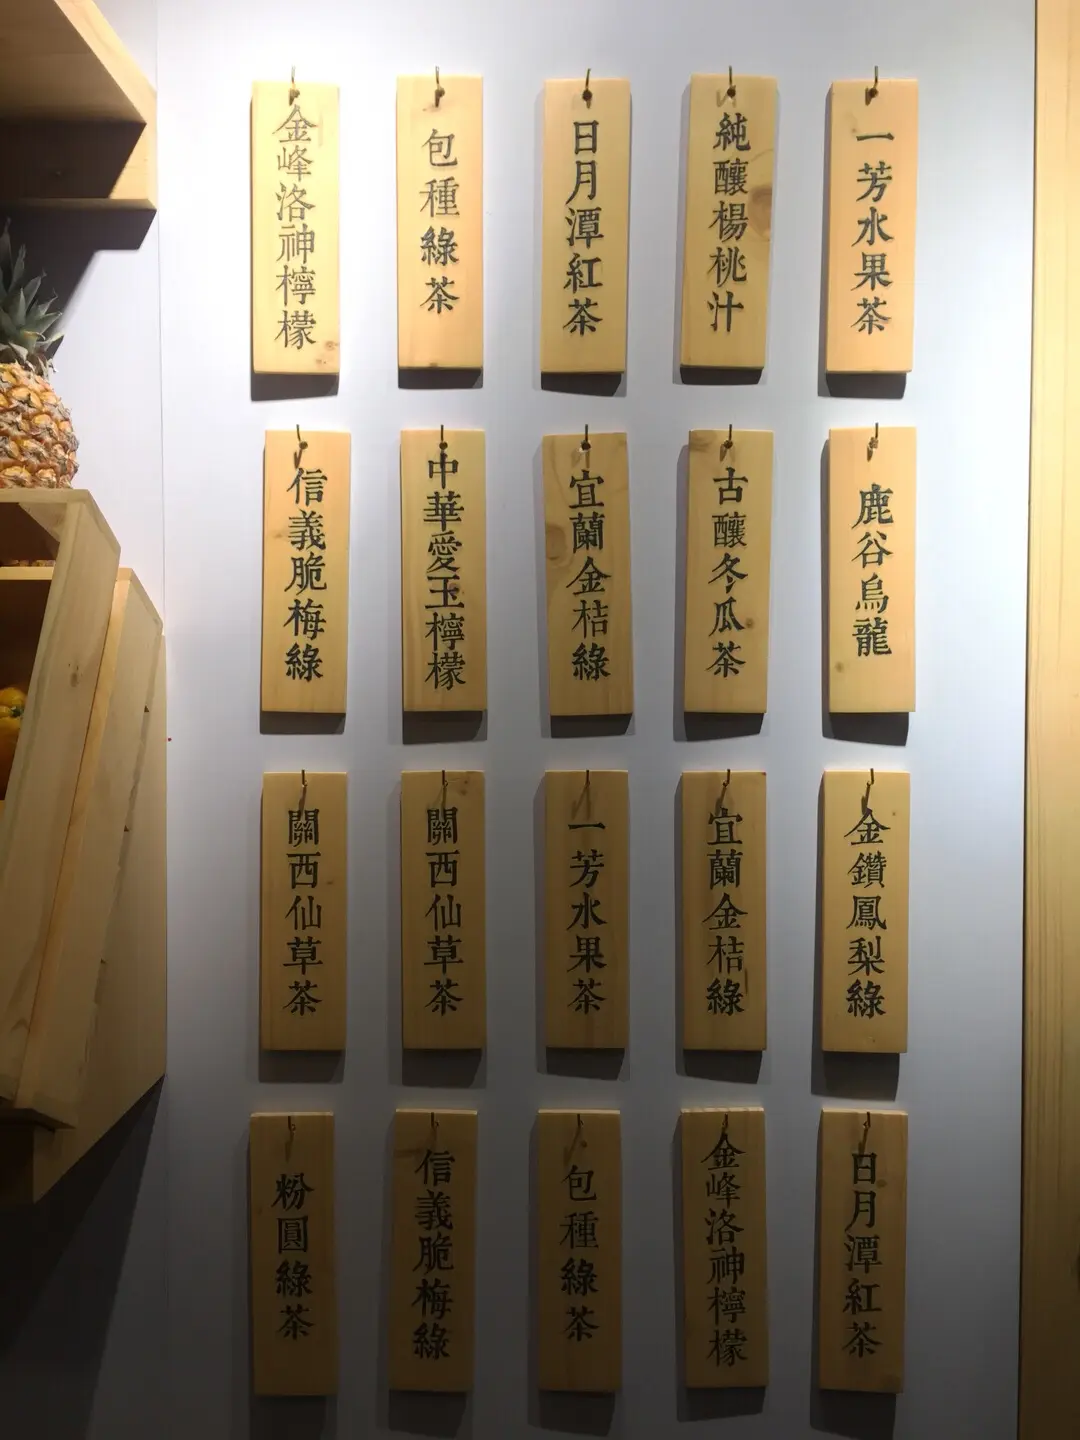 金峰洛神檸檬
包種綠茶
日月潭紅茶
純釀楊桃汁
一芳水果茶
信義脆梅綠
中華愛玉檸檬
宜蘭金桔綠
古釀冬瓜茶
鹿谷烏龍
關西仙草茶
關西仙草茶
一芳水果茶
宜蘭金桔綠
金鑽鳳梨綠
粉圓綠茶
信義脆梅綠
包種綠茶
金峰洛神檸檬
日月潭紅茶